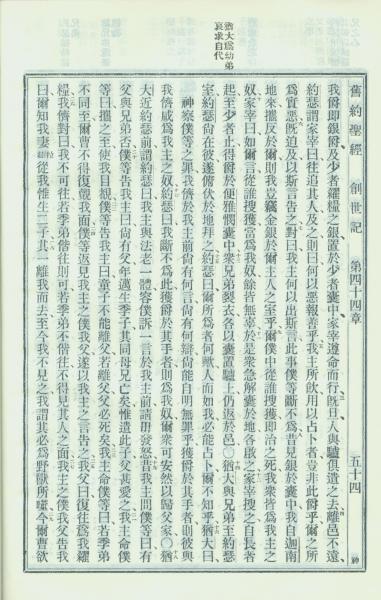 舊約聖經 創世記 第四十四章 五十四
猶大爲幼弟
哀求自代
我爵即銀爵及少者糴糧之銀置於少者囊中家宰遵命而行既旦人與驢俱遣之去離邑不遠
約瑟謂家宰曰往追其人及之則曰何以惡報善乎我主所飲用以占卜者豈非此爵乎爾之所
爲實惡既追及以斯言告之對曰我主何以出斯言此事僕等斷不爲昔見銀於囊中我自迦南
地來攜反於爾則我豈竊金銀於爾主人之室乎爾僕中從誰搜獲即治之死我衆皆爲我主之
奴家宰曰如爾言從誰搜獲當爲我奴餘皆無辜於是衆急解囊於地各啟之家宰搜之自長者
起至少者止得爵於便雅憫囊中衆兄弟裂衣各以囊置驢上仍返於邑○猶大與兄弟至約瑟
室約瑟尚在彼遂俯伏於地拜之約瑟曰爾所爲者何歟人而如我必能占卜爾不知乎猶大曰
神察僕等之罪我儕於我主前尚有何言尚有何辯尚能自明無罪乎獲爵於其手者則彼與
我儕咸爲我主之奴約瑟曰我斷不爲此獲爵於其手者則爲我奴爾衆可安然以歸父家○猶
大近約瑟前謂約瑟曰我主與法老一體容僕訴一言於我主前請毋發怒昔我主問僕等曰有
父與兄弟否僕等告我主曰尚有父年邁生季子其同母兄已亡矣惟遺此子父甚愛之我主命僕
等曰攜之至使我目覩僕等告我主曰童子不能離父若離父父必死矣我主命僕等曰若季弟
不同至爾曹不得復覩我面僕等返見我主之僕我父遂以我主之言告之我父曰復往爲我糴
糧我儕對曰我不可往若季弟偕往則可若季弟不偕往不得見其人之面我主之僕我父告我
曰爾知我妻拉結從我惟生二子其一離我而去至今我不見之我謂其必爲野獸所噬今爾曹欲